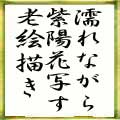 濡れながら
紫陽花写す
老絵描き